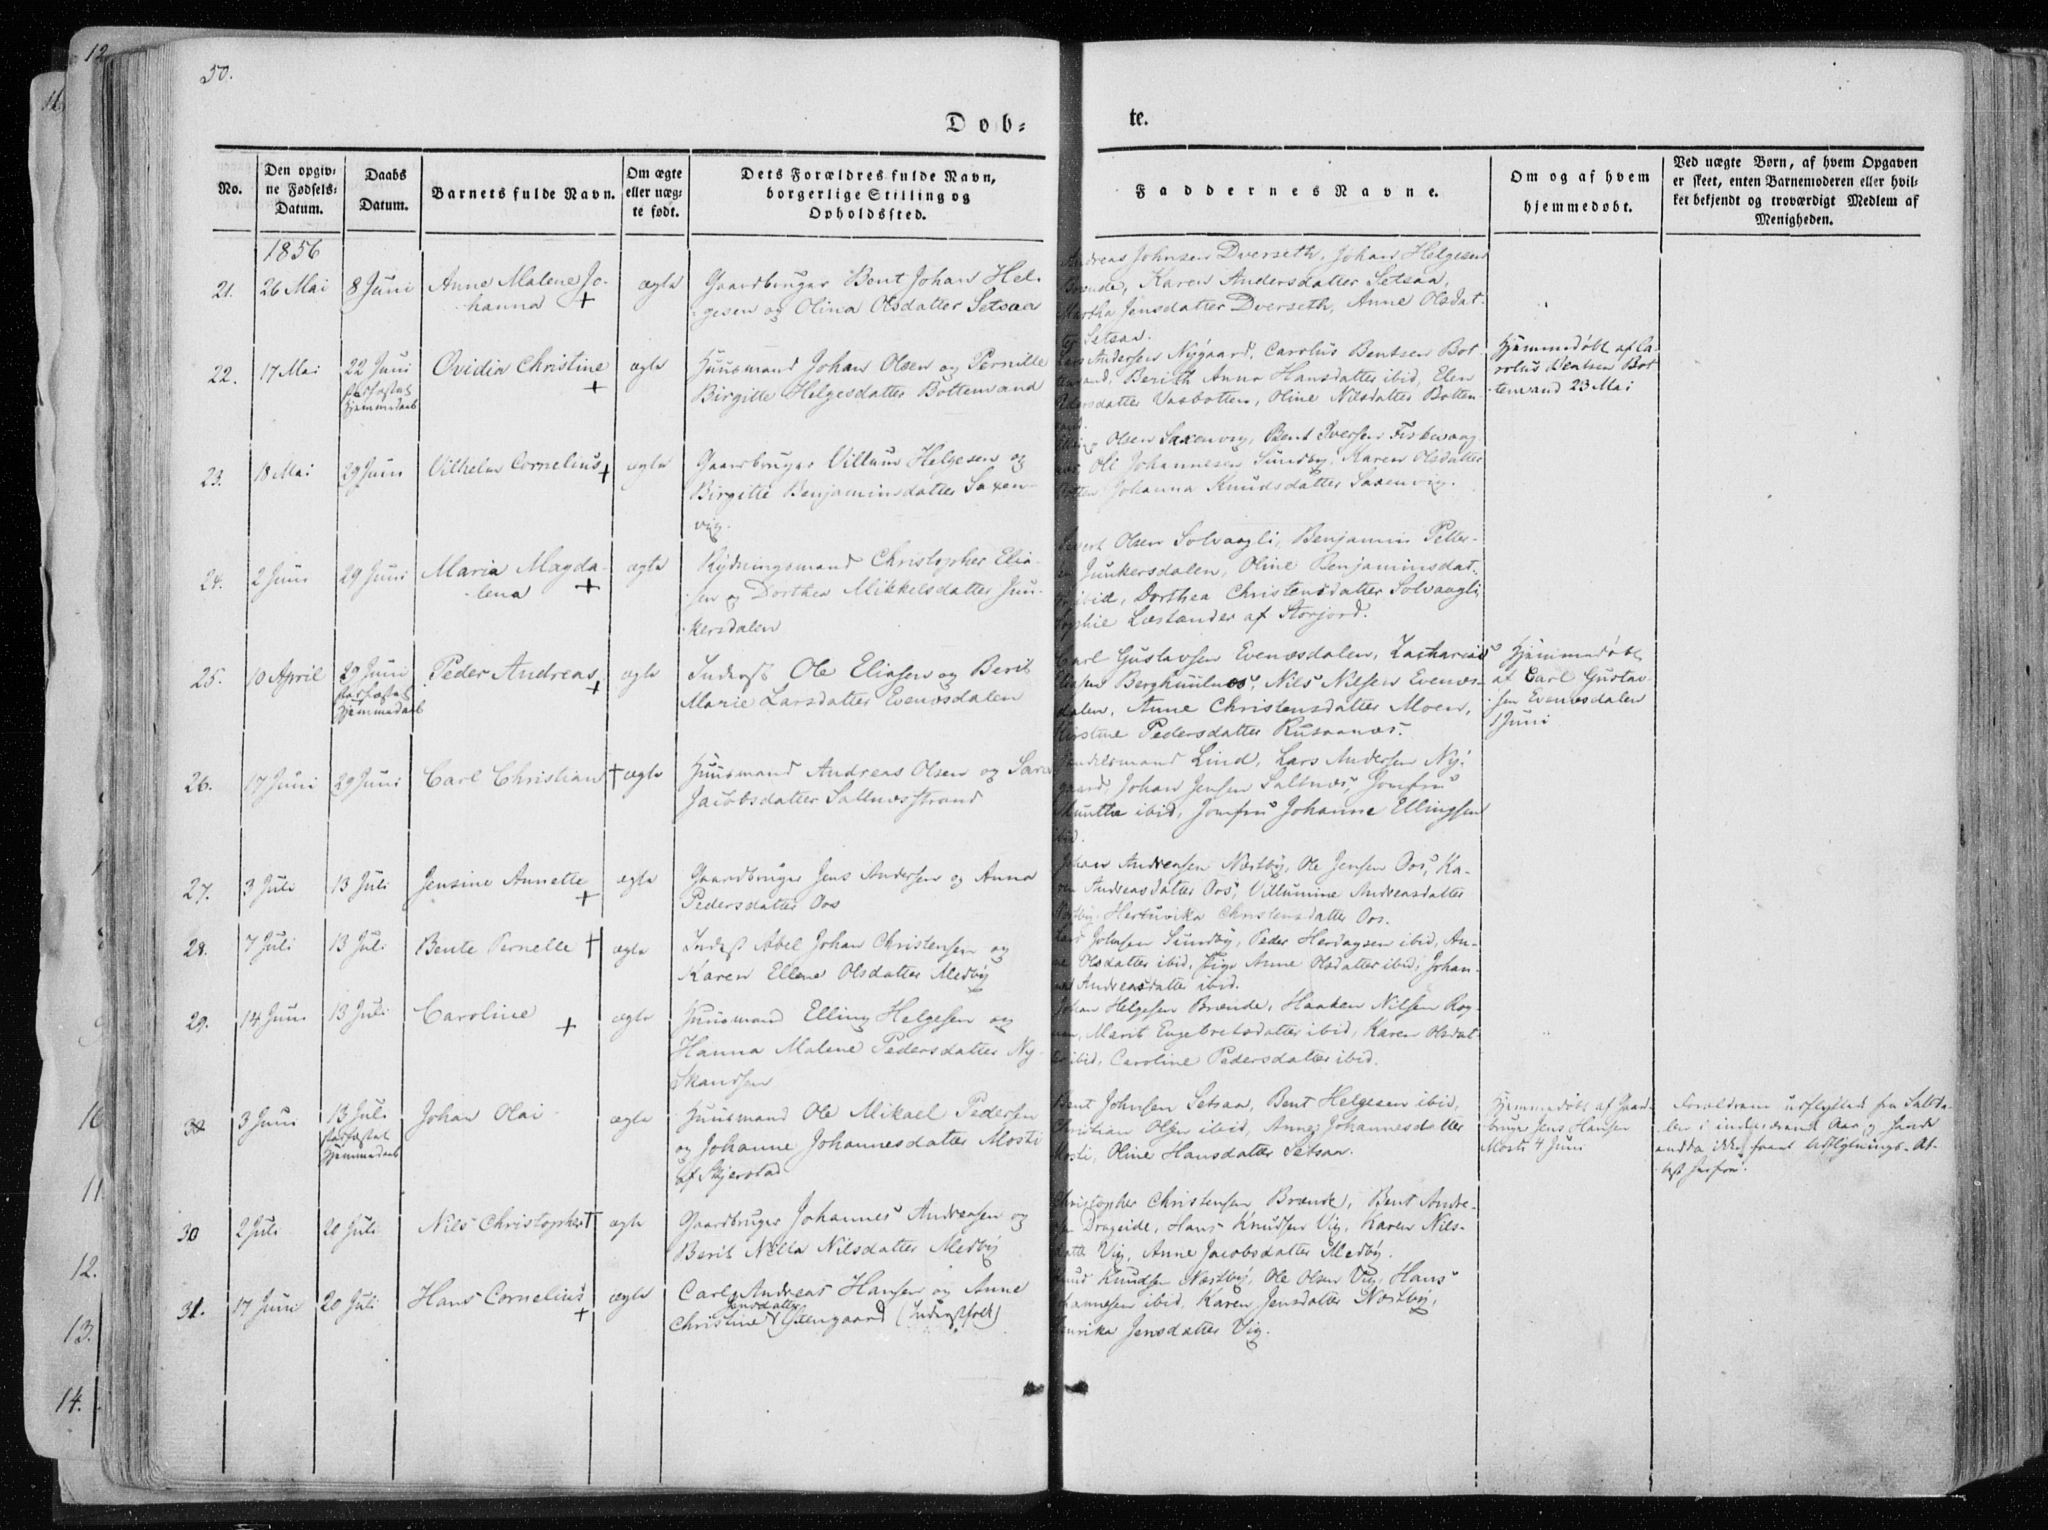 50.
Dob=
te.
No.
Den opgiv-
ne Fødsels-
Datum.
Daabs
Datum.
Barnets fulde Navn.
Om ægte
eller uæg-
te født.
Dets Forældres fulde Navn,
borgerlige Stilling og
Opholdssted.
Faddernes Navne.
Om og af hvem
hjemmedøbt.
Ved uægte Børn, af hvem Opgaven
er skeet, enten Barnemoderen eller hvil-
ket bekjendt og troværdigt Medlem af
Menigheden.
1856
21. 26 Mai 8 Juni Anne Malene Jo-
hanna +
ægte
Gaardbruger Bent Johan Hel-
gesen og Olina Olsdatter Setsaa
Andreas Johnsen Dverseth, Johan Helgesen
Brænde, Karen Andersdatter Setsaa,
Martha Jensdatter Dverseth, Anne Olsdat-
ter Setsaa.
22. 17 Mai 22 Juni
stadfæstet
Hjemmedaab
Ovidia Christine
+
ægte
Huusmand Johan Olsen og Pernille
Birgitte Helgesdatter Bottenvand
Lars Andersen Nygaard, Carolus Bentsen Bot-
tenvand, Berith Anna Hansdatter ibid, Elen
Pedersdatter Vasbotten, Oline Nilsdatter Botten-
vand.
Hjemmedøbt af Ca-
rolus Bentsen Bot-
tenvand 23 Mai
23. 18 Mai 29 Juni Vilhelm Cornelius +
ægte
Gaardbruger Villum Helgesen og
Birgitte Benjaminsdatter Saxen-
vig.
Olsen Saxenvig, Bent Iversen Fiskevaag
Ole Johannesen Sundby, Karen Olsdatter
Botten, Johanna Knudsdatter Saxenvig.
24. 2 Juni 29 Juni Maria Magda-
lena +
ægte
Rydningsmand Christopher Elia-
sen og Dorthea Mikkelsdatter Jun-
kersdalen
Sivert Olsen Solvaagli, Benjamin Petter-
sen Junkersdalen, Oline Benjaminsdat-
ter ibid, Dorthea Christensdatter Solvaagli
Sophie Læstander af Storjord.
25. 10 April 29 Juni
stadfæstet
Hjemmedaab
Peder Andreas
+
ægte
Inderst Ole Eliasen og Berit
Marie Larsdatter Evenesdalen
Carl Gustavsen Evenæsdalen, Zacharias
Eliasen Berghulnes, Nils Nilsen Evenæs-
dalen, Anne Christensdatter Moen,
Kirstine Pedersdatter Rusaanæs.
Hjemmedøbt
af Carl Gustav-
sen Evenæsdalen
1 Juni
26. 17 Juni 29 Juni Carl Christian +
ægte
Huusmand Andreas Olsen og Sara
Jacobsdatter Saltnæsstrand
Handelsmand Lind, Lars Andersen Ny-
gaard, Johan Jensen Saltnæs, Jomfru
Munthe ibid, Jomfru Johanne Ellingsen
ibid.
27. 3 Juli 13 Juli Jensine Annette
+
ægte
Gaardbruger Jens Andersen og Anna
Pedersdatter Os
Johan Andreasen Næstby, Ole Jensen Os, Ka-
ren Andreasdatter Os, Villumine Andreasdatter
Næstby, Hertuvika Christensdatter Os.
28. 7 Juli 13 Juli Bente Pernelle +
ægte
Inderst Abel Johan Christensen og
Karen Ellene Olsdatter Medby
Lars Johnsen Sundby, Peder Herdagsen ibid, An-
ne Olsdatter ibid, Pige Anne Olsdatter ibid, Johan-
na Andreasdatter ibid.
29. 14 Juni 13 Juli Caroline
+
ægte
Huusmand Elling Helgesen og
Hanna Malene Pedersdatter Ny-
skandsen
Johan Helgesen Brænde, Haaken Nilsen Rog-
nan, Marit Engebretsdatter ibid, Karen Olsdat-
ter ibid, Caroline Pedersdatter ibid.
30 3 Juni 13 Juli
stadfæstet
Hjemmedaab
Johan Olai
ægte
Huusmand Ole Mikael Pedersen
og Johanne Johannesdatter Mosti
af Skjerstad
Bent Johnsen Setsaa, Bent Helgesen ibid,
Christian Olsen ibid, Anne Johannesdatter
Mosti, Oline Hansdatter Setsaa.
Hjemmedøbt af Gaard-
bruger Jens Hansen
Mosti 4 Juni
Forældrene udflyttet fra Saltda-
len i indeværende Aar og havde
endda ikke faaet Udflytnings-At-
test herfra.
30 2 Juli 20 Juli Nils Christopher +
ægte
Gaardbruger Johannes Andreasen og
Berit Nilla Nilsdatter Medby
Christopher Christensen Brænde, Bent Andre-
sen Drageide, Hans Knudsen Vig, Karen Nils-
datter Vig, Anne Jacobsdatter Medby.
31. 17 Juni 20 Juli Hans Cornelius
+
ægte
Carl Andreas Hansen og Anne
Jensdatter
Christine Steengaard (Inderstfolk)
Knud Knudsen Næstby, Ole Olsen Vig, Hans
Johannesen ibid, Karen Jensdatter Næstby,
Henrika Jensdatter Vig.
12
16
11
12.
13.
14.